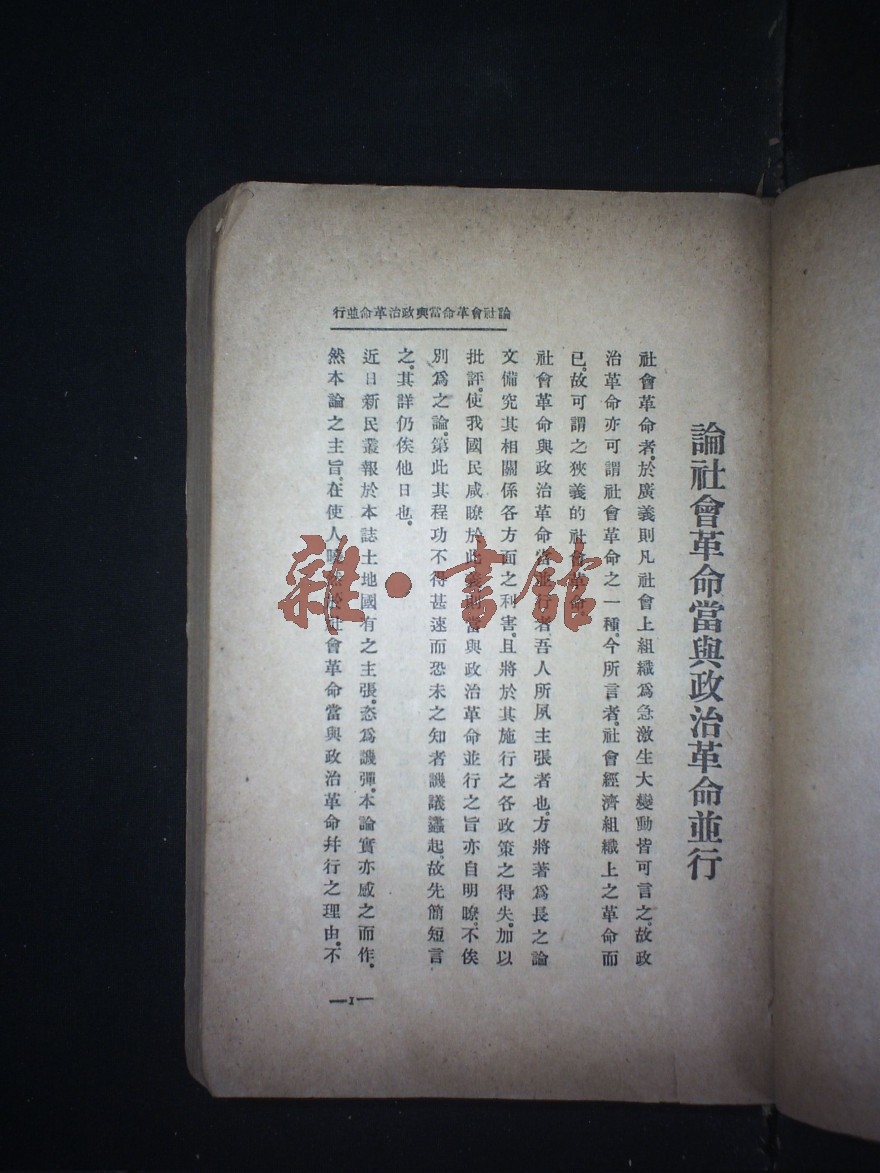 論社會革命當與政治革命並行
社會革命者。於廣義則凡社會上組織爲急激生大變動皆可言之。故政
治革命亦可謂社會革命之一種。今所言者。社會經濟組織上之革命而
已。故可謂之狹義的社會革命。
社會革命與政治革命當並行者。吾人所夙主張者也。方將著爲長之論
文備究其相關係各方面之利害。且將於其施行之各政策之得失。加以
批評。使我國民咸瞭於此義則當與政治革命並行之旨亦自明瞭。不俟
別爲之論。第此其程功不得甚速而恐未之知者譏議蠭起。故先簡短言
之。其詳仍俟他日也。
近日新民叢報於本誌土地國有之主張。恣爲譏彈。本論實亦感之而作。
然本論之主旨。在使人曉然於社會革命當與政治革命幷行之理由。不
論社會革命當與政治革命並行
—1—
雜·書館